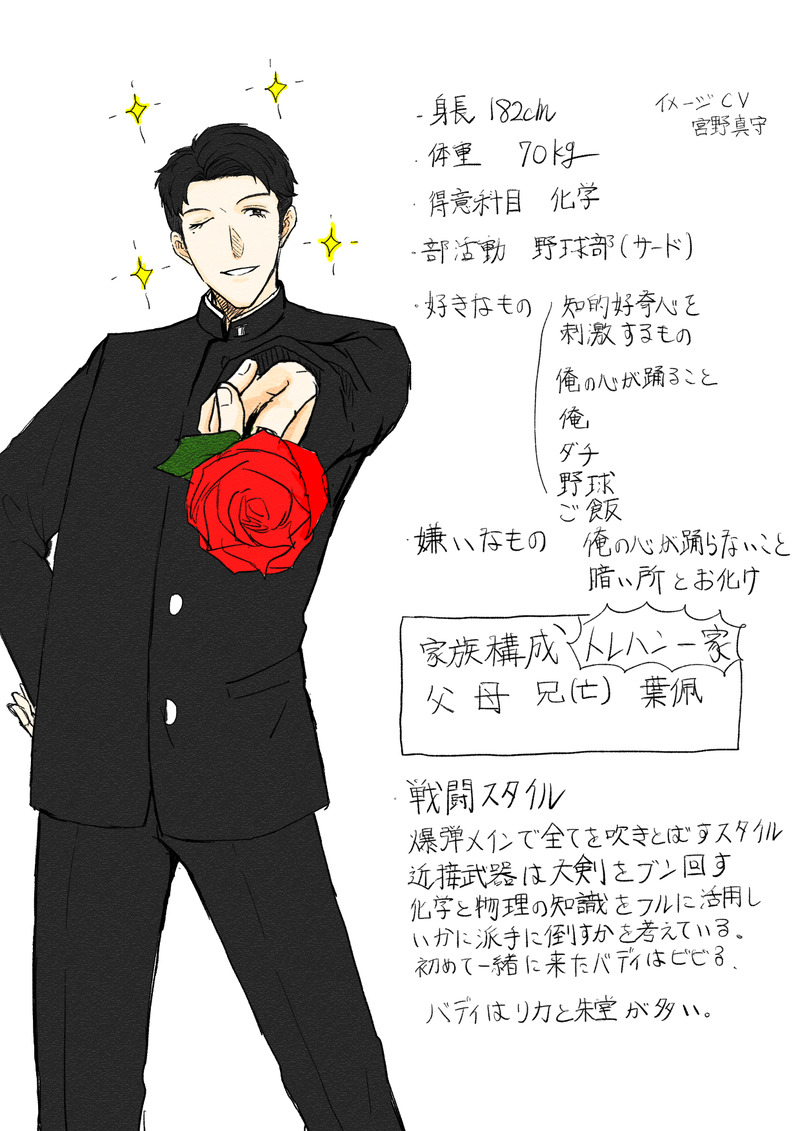 ・身長 182cm
イメージCV
宮野真守
・体重 70kg
・得意科目 化学
・部活動 野球部(サード)
・好きなもの 知的好奇心を
刺激するもの
俺の心が踊ること
俺
ダチ
野球
ご飯
・嫌いなもの 俺の心が踊らないこと
暗い所とお化け
家族構成 トレハン一家
父 母 兄(亡) 葉佩
・戦闘スタイル
爆弾メインで全てを吹きとばすスタイル
近接武器は大剣をブン回す
化学と物理の知識をフルに活用し
いかに派手に倒すかを考えている。
初めて一緒に来たバディはビビる。
バディはリカと朱堂が多い。